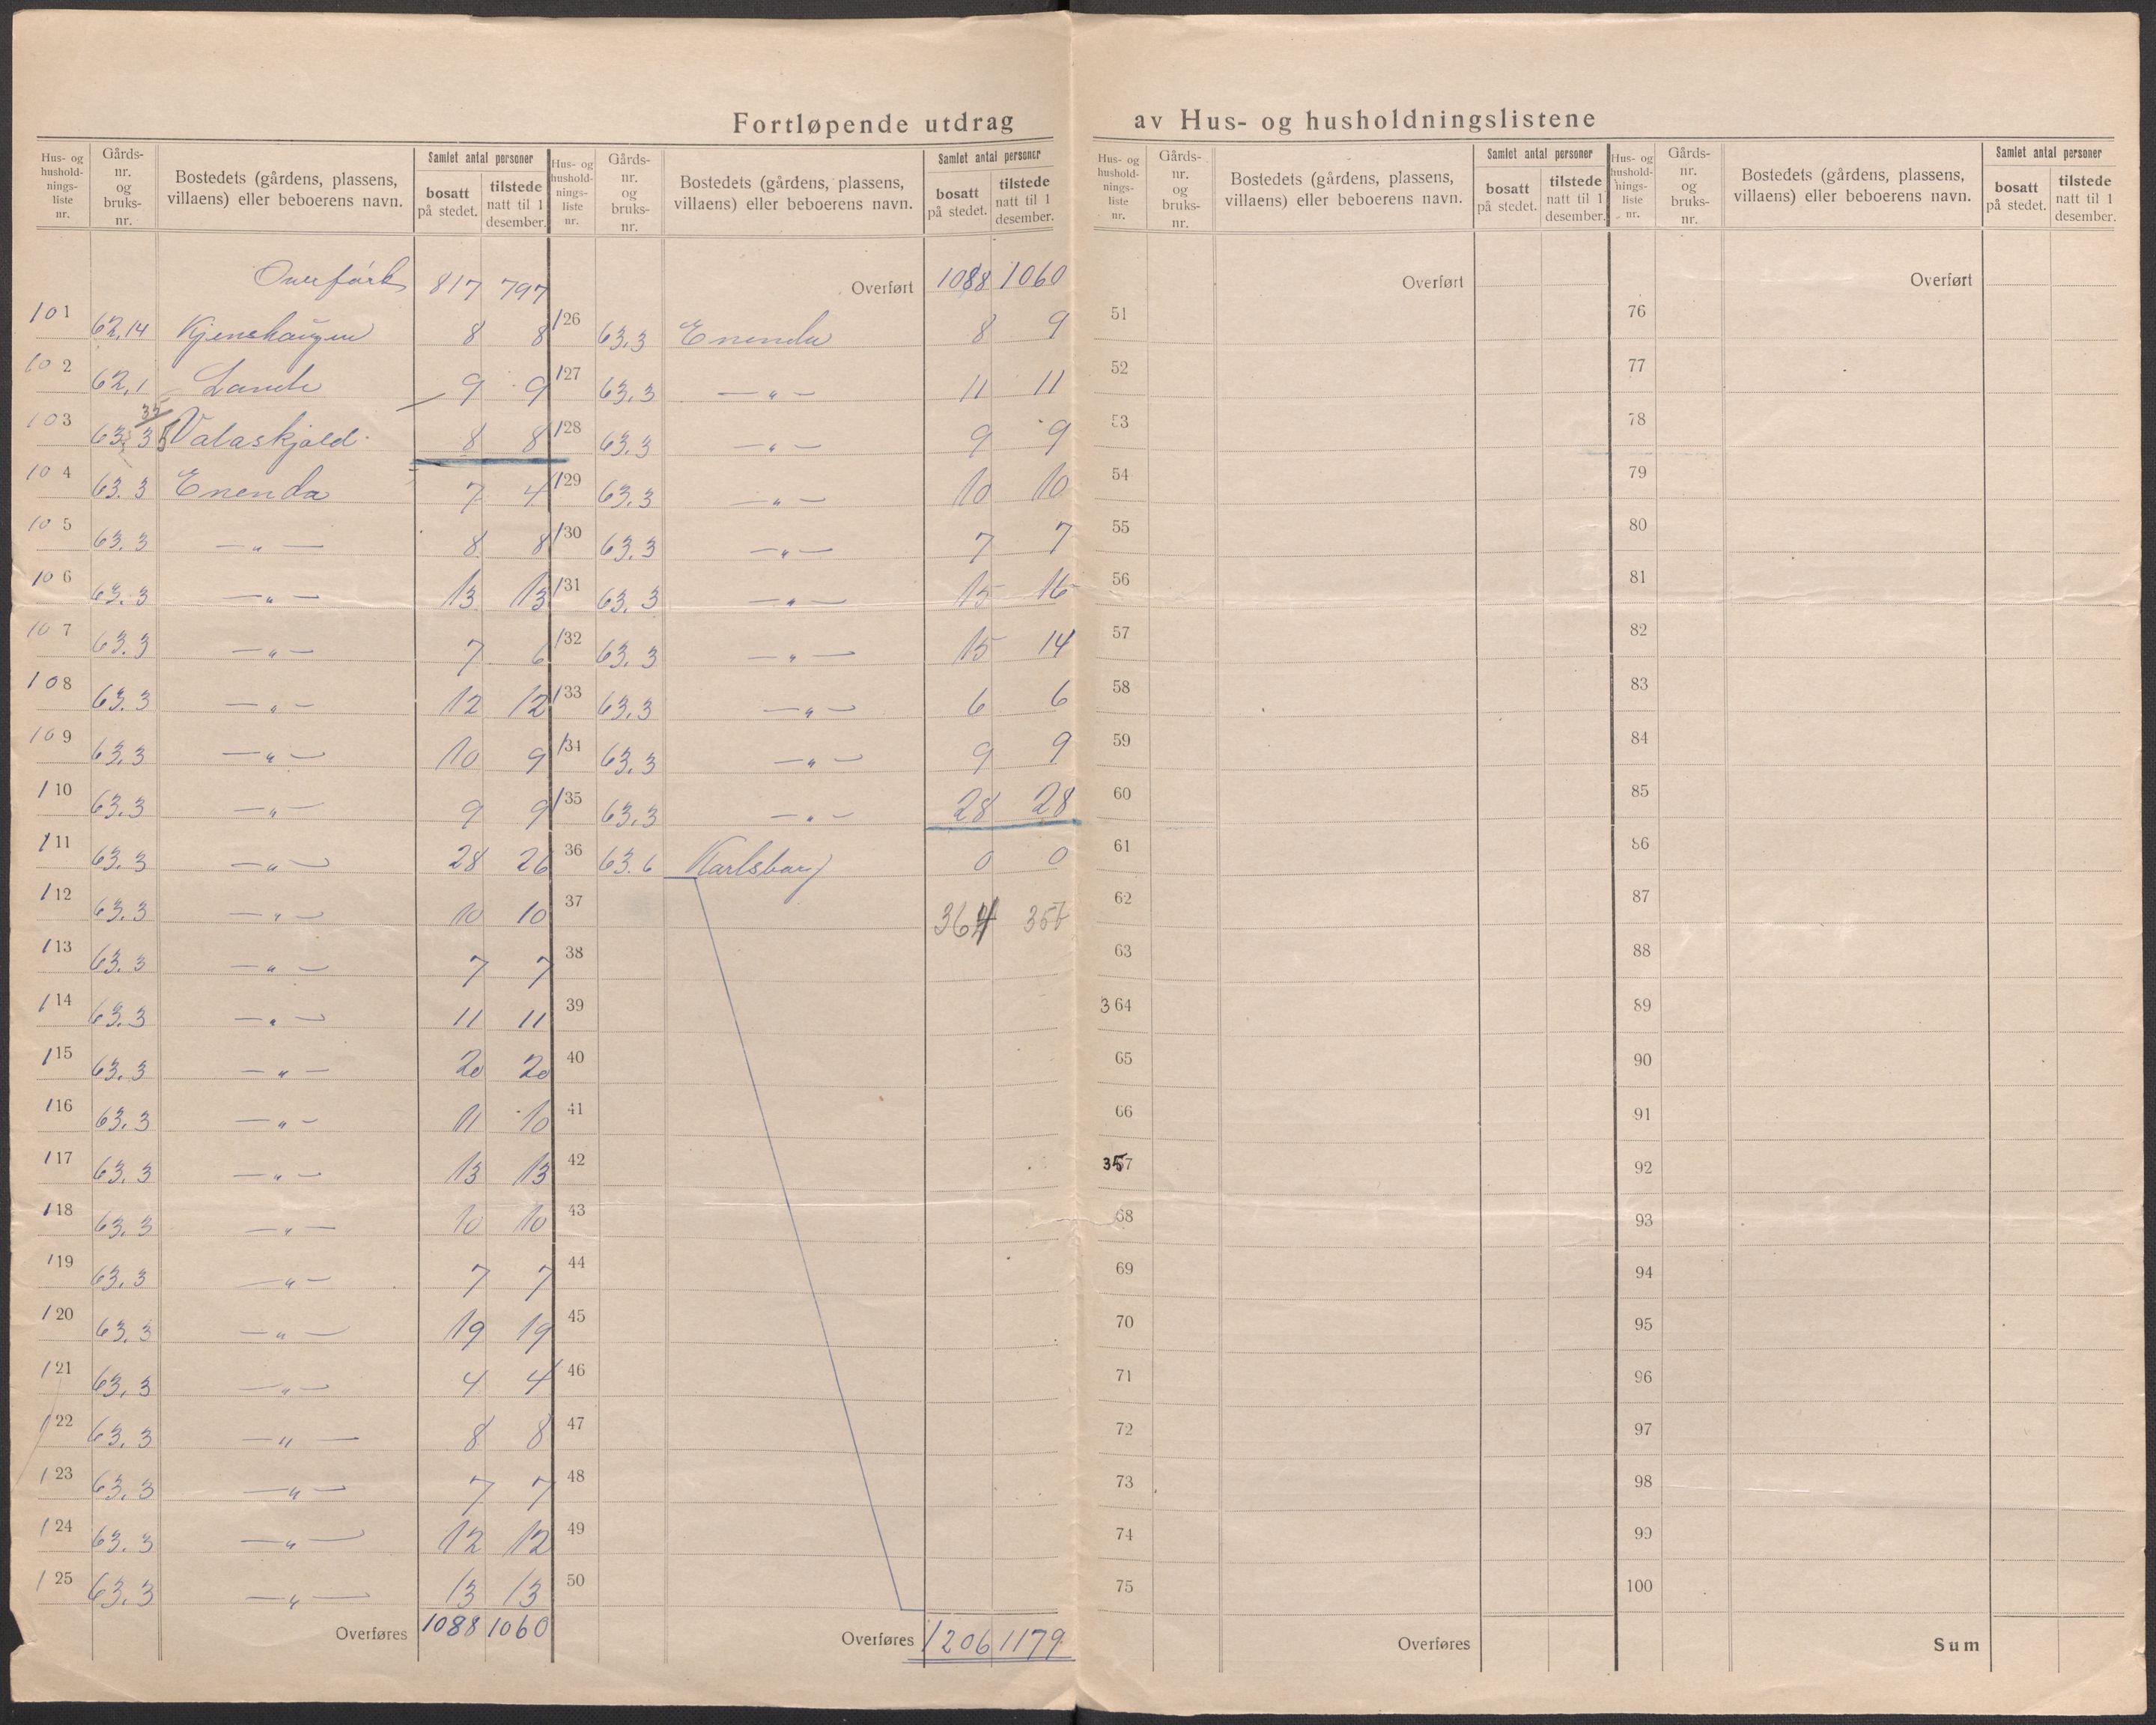 Fortløpende utdrag av Hus- og husholdningslistene
Hus- og hushold- nings- liste nr. | Gårds- nr. og bruks- nr. | Bostedets (gårdens, plassens, villaens) eller beboerens navn. | Samlet antal personer | bosatt på stedet. | tilstede natt til 1 desember.
Overført 817 797
101 62,14 Kjenshaugen 8 8
102 62,1 Lande 9 9
103 63, 35 Valaskjold 8 8
104 63.3 Enenda 7 4
105 63.3 —"— 8 8
106 63.3 —"— 13 13
107 63.3 —"— 7 6
108 63.3 —"— 12 12
109 63.3 —"— 10 9
110 63.3 —"— 9 9
111 63.3 —"— 28 26
112 63.3 —"— 10 10
113 63.3 —"— 7 7
114 63.3 —"— 11 11
115 63.3 —"— 20 20
116 63.3 —"— 11 10
117 63.3 —"— 13 13
118 63.3 —"— 10 10
119 63.3 —"— 7 7
120 63.3 —"— 19 19
121 63.3 —"— 4 4
122 63.3 —"— 8 8
123 63.3 —"— 7 7
124 63.3 —"— 12 12
125 63.3 —"— 13 13
Overføres 1088 1060
Hus- og hushold- nings- liste nr. | Gårds- nr. og bruks- nr. | Bostedets (gårdens, plassens, villaens) eller beboerens navn. | Samlet antal personer | bosatt på stedet. | tilstede natt til 1 desember.
Overført 1088 1060
126 63.3 Enenda 8 9
127 63.3 —"— 11 11
128 63.3 —"— 9 9
129 63.3 —"— 10 10
130 63.3 —"— 7 7
131 63.3 —"— 15 16
132 63.3 —"— 15 14
133 63.3 —"— 6 6
134 63.3 —"— 9 9
135 63.3 —"— 28 28
36 63.6 Karlsborg 0 0
37 364 357
38
39
40
41
42
43
44
45
46
47
48
49
50
Overføres 1206 1179
Hus- og hushold- nings- liste nr. | Gårds- nr. og bruks- nr. | Bostedets (gårdens, plassens, villaens) eller beboerens navn. | Samlet antal personer | bosatt på stedet. | tilstede natt til 1 desember.
Overført
51
52
53
54
55
56
57
58
59
60
61
62
63
364
65
66
357
68
69
70
71
72
73
74
75
Overføres
Hus- og hushold- nings- liste nr. | Gårds- nr. og bruks- nr. | Bostedets (gårdens, plassens, villaens) eller beboerens navn. | Samlet antal personer | bosatt på stedet. | tilstede natt til 1 desember.
Overført
76
77
78
79
80
81
82
83
84
85
86
87
88
89
90
91
92
93
94
95
96
97
98
99
100
Sum